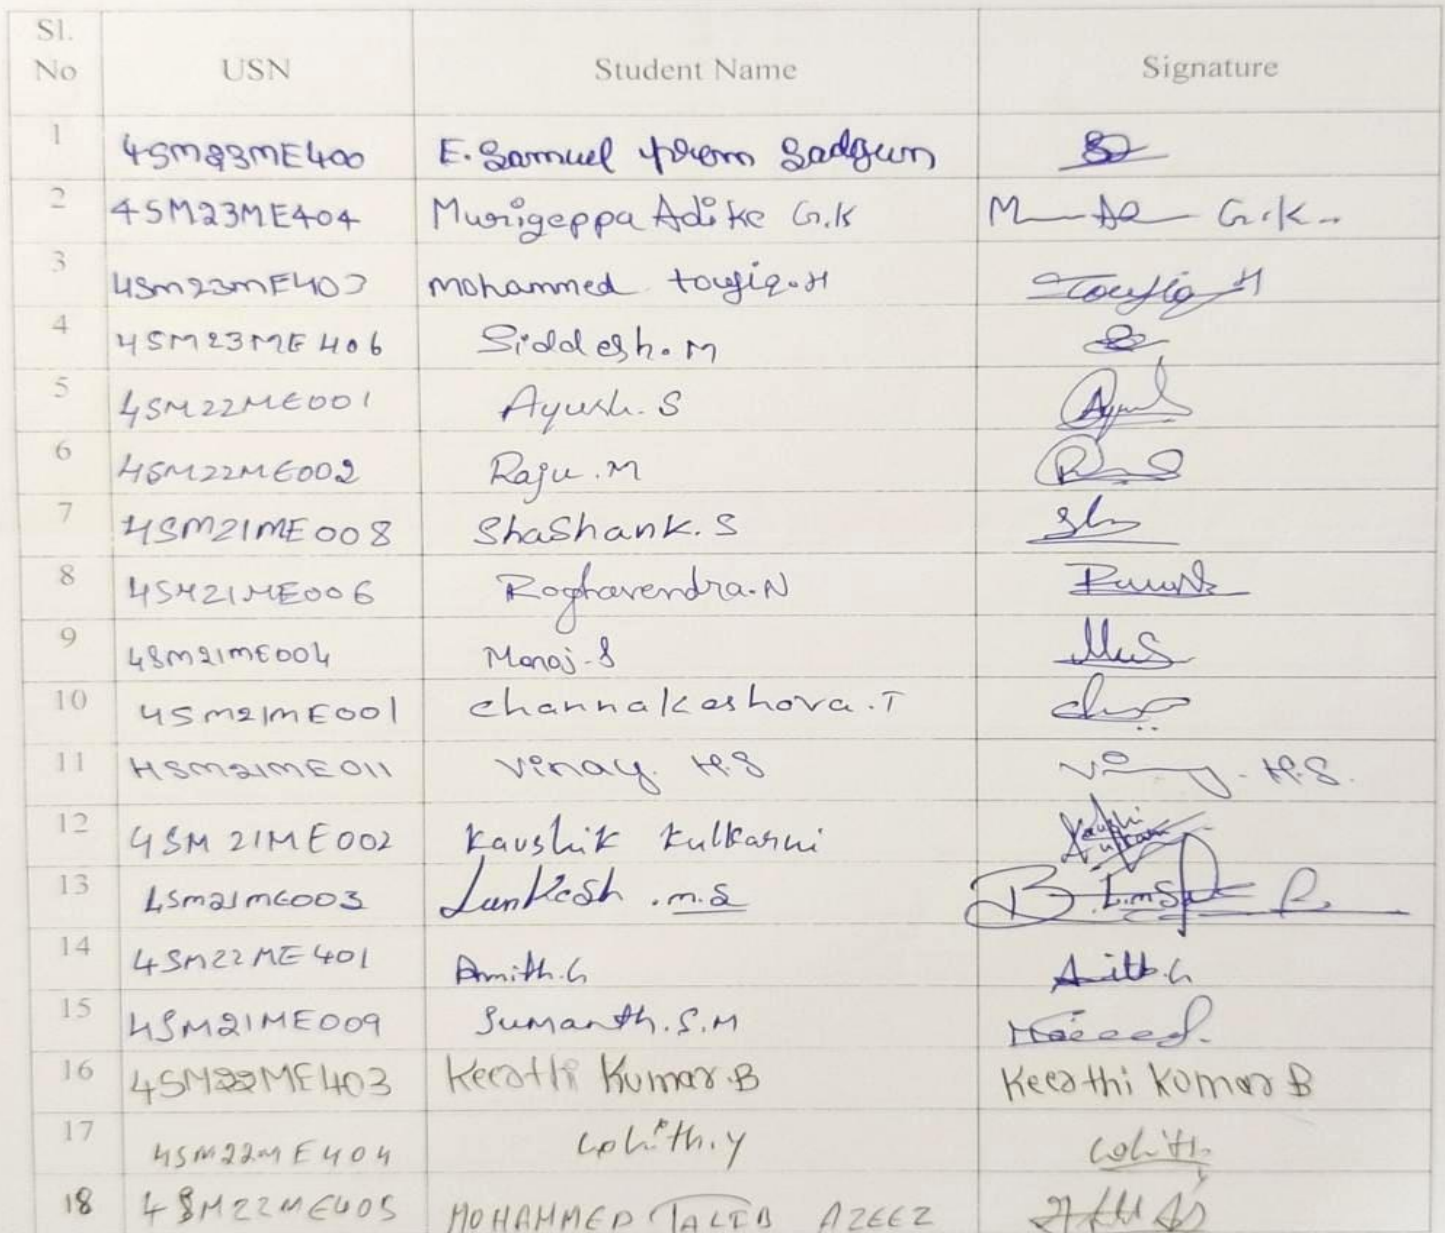 Sl. No USN Student Name Signature
1 4SM23ME400 E. Samuel prem Sadgun
2 4SM23ME404 Murigeppa Adike G.K M A G.K.
3 4SM23ME403 Mohammed toufiq.H Toufiq H
4 4SM23ME406 Siddesh.M
5 4SM22ME001 Ayush.S Ayush
6 4SM22ME002 Raju.M
7 4SM21ME008 ShaShank.S
8 4SM21ME006 Raghavendra.N
9 4SM21ME004 Manoj.S
10 4SM21ME001 channakeshava.T
11 4SM21ME011 Vinay H.S H.S.
12 4SM21ME002 Kaushik Kulkarni
13 4SM21ME003 Lankesh .m.s
14 4SM22ME401 Amith.G Amith.G
15 4SM21ME009 Sumanth.S.M
16 4SM22ME403 Keerthi Kumar.B Keerthi Kumar B
17 4SM22ME404 Lohith.y Lohith.
18 4SM22ME405 MOHAMMED TALIB AZEEZ